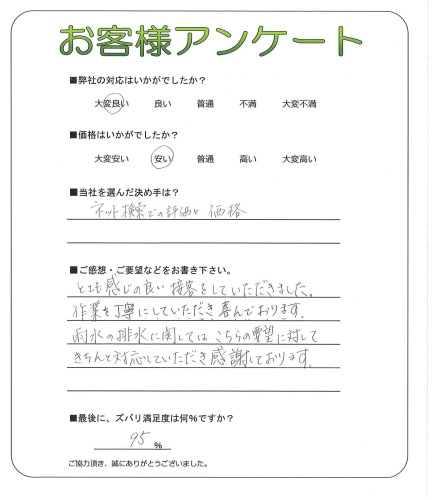 お客様アンケート
■弊社の対応はいかがでしたか？
大変良い　良い　普通　不満　大変不満
■価格はいかがでしたか？
大変安い　安い　普通　高い　大変高い
■当社を選んだ決め手は？
ネット検索での評価と価格
■ご感想・ご要望などをお書き下さい。
とても感じの良い接客をしていただきました。
作業を丁寧にしていただき喜んでおります。
雨水の排水に関してはこちらの要望に対して
きちんと対応していただき感謝しております。
■最後に、ズバリ満足度は何％ですか？
95 ％
ご協力頂き、誠にありがとうございました。